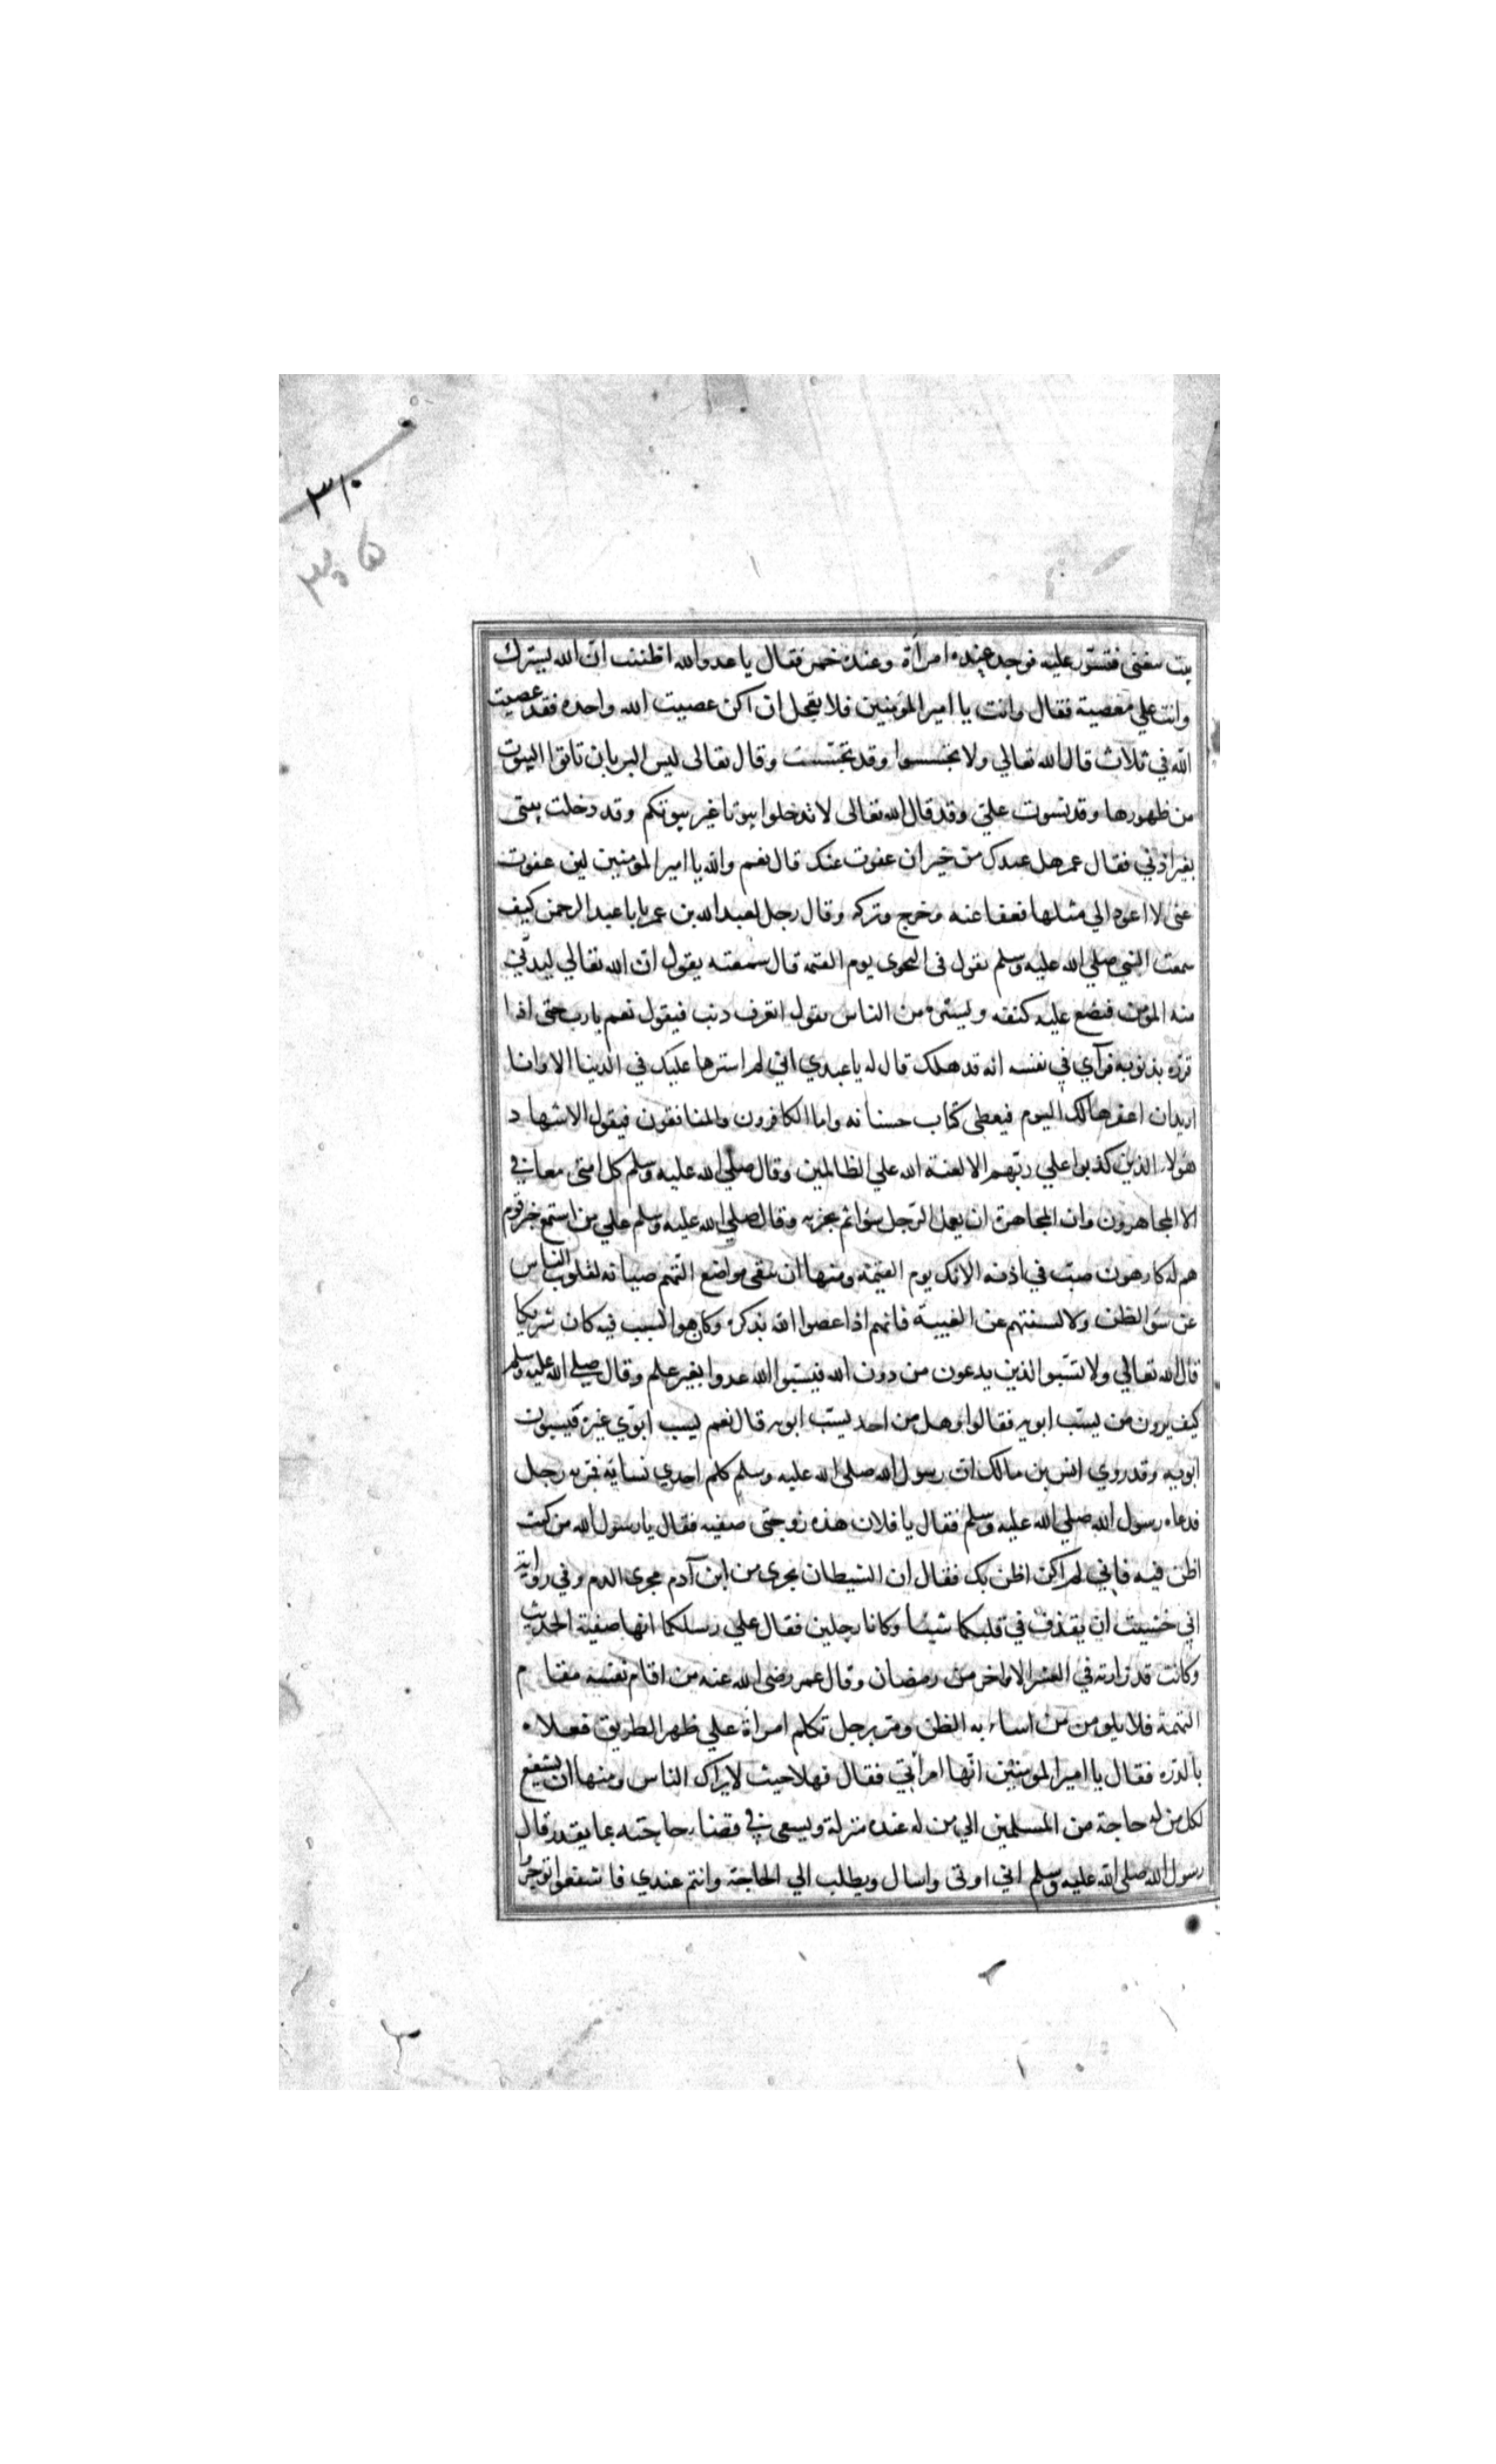 ٣١٠
٣٠۵
بيت يتغنى فتسور عليه فوجد عنده امرأة وعنده خمر فقال يا عدو الله اظننت ان الله يسترك
وانت علي معصية فقال وانت يا امير المؤمنين فلا تعجل ان اكن عصيت الله واحدة فقد عصيت
الله في ثلاث قال الله تعالي ولا تجسسوا وقد تجسست وقال تعالى ليس البر بان تاتوا البيوت
من ظهورها وقد تسوت علي وقد قال الله تعالى لا تدخلوا بيوتا غير بيوتكم وقد دخلت بيتى
بغير اذني فقال عمر هل عندك من خير ان عفوت عنك قال نعم والله يا امير المؤمنين لين عفوت
عنى لا اعود الي مثلها فعفا عنه وخرج وتركه وقال رجل لعبد الله بن عمر يابا عبد الرحمن كيف
سمعت النبي صلي الله عليه وسلم يقول في النجوى يوم القيمة قال سمعته يقول ان الله تعالي ليدني
منه المؤمن فيضع عليه كنفه ويستره من الناس يقول اتعرف ذنب فيقول نعم يا رب حتى اذا
قرره بذنوبه فرآي في نفسه انه قد هلك قال له يا عبدي اني لم استرها عليك في الدنيا الا وانا
اريد ان اغفرها لك اليوم فيعطى كتاب حسناته واما الكافرون والمنافقون فيقول الاشهاد
هؤلاء الذين كذبوا علي ربهم الا لعنة الله علي الظالمين وقال صلي الله عليه وسلم كل امتى معافي
الا المجاهرون وان المجاهرة ان يعمل الرجل سوا ثم يخبر به وقال صلي الله عليه وسلم علي من استمع خبر قوم
هم له كارهون صب في اذنه الانك يوم القيمة ومنها ان يتقى مواضع التهم صيانة لقلوب الناس
عن سؤ الظن ولالسنتهم عن الغيبة فانهم اذا عصوا الله بذكره وكان هو السبب فيه كان شريكا
قال الله تعالي ولا تسبوا الذين يدعون من دون الله فيسبوا الله عدوا بغير علم وقال صلي الله عليه وسلم
كيف يرون من يسب ابويه فقالوا وهل من احد يسب ابويه قال نعم يسب ابوي غيره فيسبون
ابويه وقد روي انس بن مالك ان رسول الله صلي الله عليه وسلم كلم احدي نسائه فمر به رجل
فدعاه رسول الله صلي الله عليه وسلم فقال يا فلان هذه زوجتى صفيه فقال يا رسول الله من كنت
اظن فيه فاني لم اكن اظن بك فقال ان الشيطان يجرى من ابن آدم مجرى الدم وفي رواية
اني خشيت ان يقذف في قلبكما شيئا وكانا رجلين فقال علي رسلكما انها صفية الحديث
وكانت قد زارته في العشر الاواخر من رمضان وقال عمر رضي الله عنه من اقام نفسه مقام
التهمة فلا يلومن من اساء به الظن ومر برجل تكلم امرأة علي ظهر الطريق فعلاه
بالدره فقال يا امير المومنين انها امرأتي فقال فهلا حيث لا يراك الناس ومنها ان يشفع
لكل من له حاجة من المسلمين الي من له عنده منزلة ويسعى في قضاء حاجته بما يقدر قال
رسول الله صلي الله عليه وسلم اني اوتى واسال ويطلب الي الحاجة وانتم عندي فاشفعوا توجروا